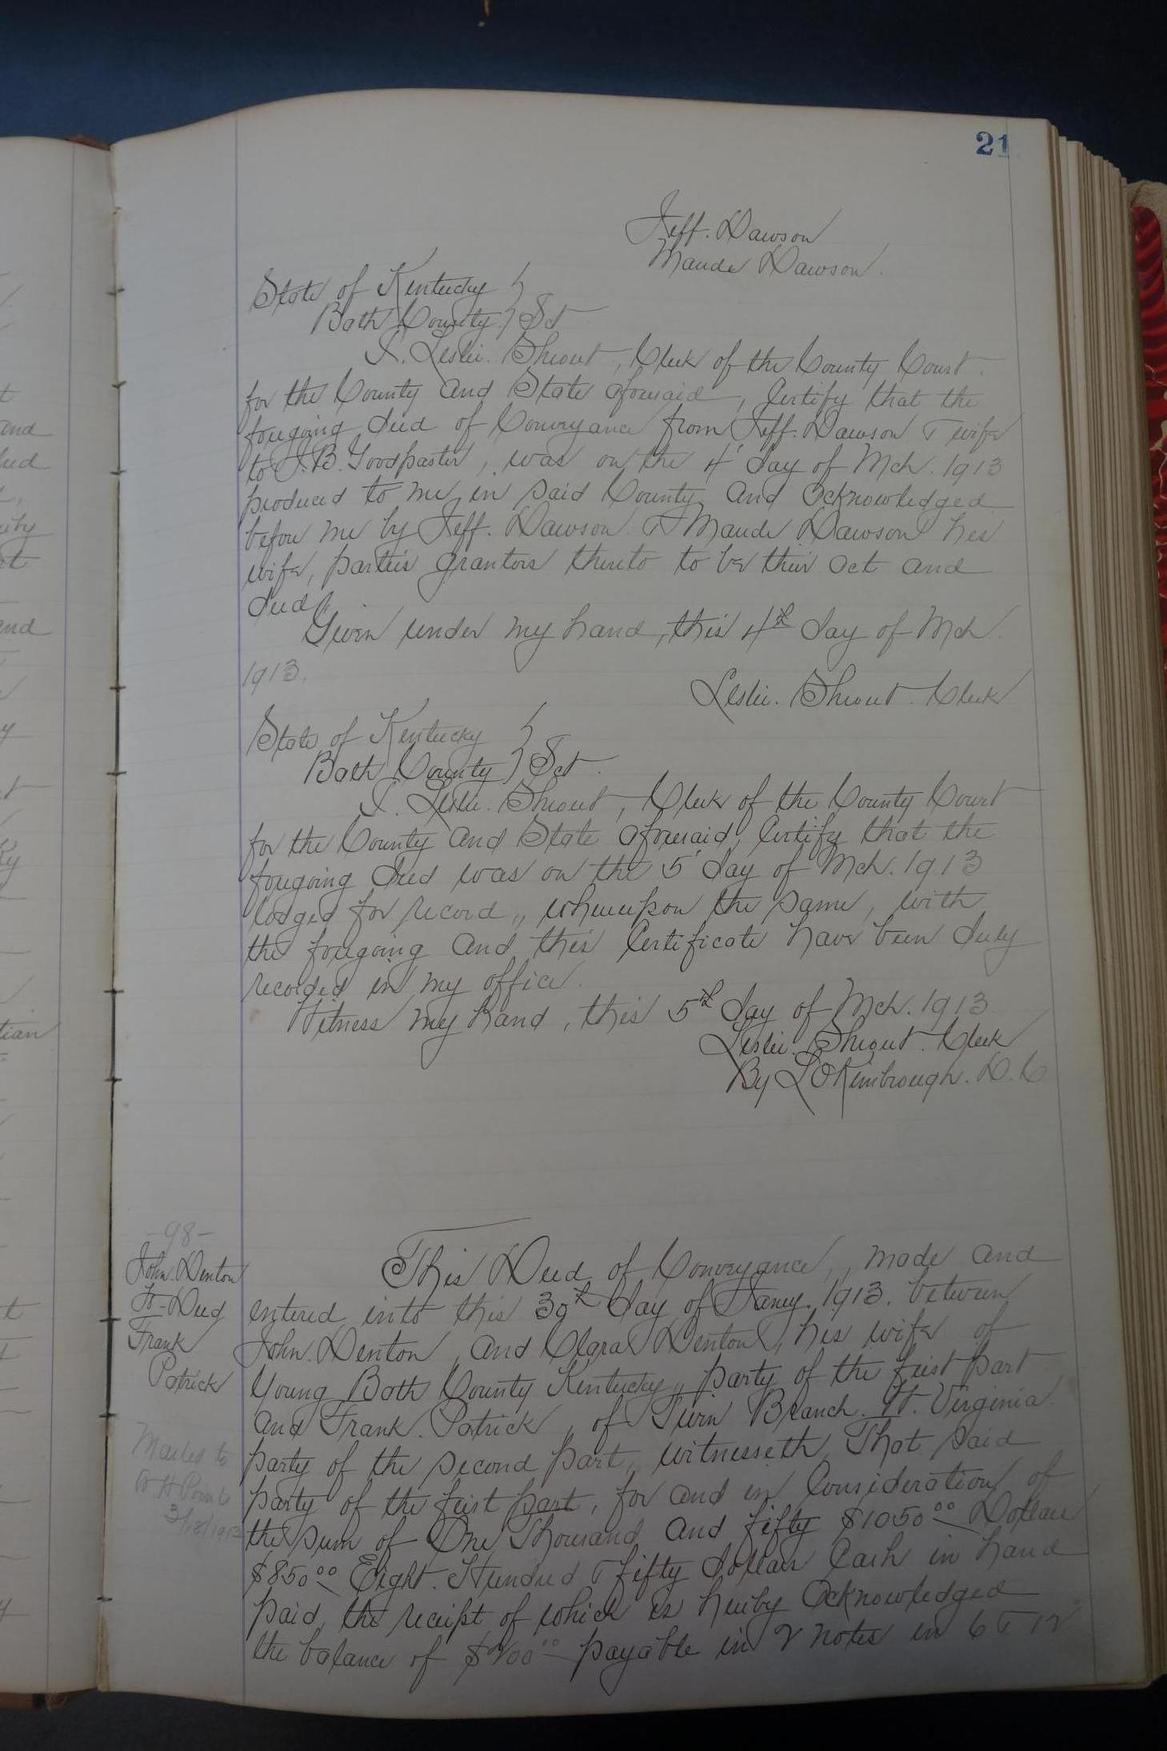 21
Jeff. Dawson
Maude Dawson.
State of Kentucky }
Bath County } Sct
I. Leslie. Shrout, Clerk of the County Court.
for the County and State aforesaid, Certify that the
foregoing deed of Conveyance from Jeff. Dawson & wife
to J. B. Goodpaster, was on the 4' day of Mch. 1913
produced to me in said County and acknowledged
before me by Jeff. Dawson & Maude Dawson his
wife, parties grantors thereto to be their act and
deed.
Given under my hand, this 4th day of Mch.
1913.
Leslie. Shrout. Clerk
State of Kentucky }
Bath County } Sct.
I. Leslie. Shrout, Clerk of the County Court
for the County and State aforesaid, Certify that the
foregoing deed was on the 5' day of Mch. 1913
lodged for record,, whereupon the same, with
the foregoing and this Certificate have been duly
recorded in my office.
Witness my hand, this 5th day of Mch. 1913
Leslie. Shrout. Clerk
By L O Kimbrough. D. C
-98-
John. Denton
to-Deed
Frank
Patrick
Mailed to
3/18/1913
This Deed of Conveyance, made and
entered into this 30th day of Jany. 1913. between
John. Denton, and Clara Denton, his wife of
Young Bath County Kentucky,, party of the first part
and Frank. Patrick, of Twin Branch. W. Virginia.
party of the second part,, witnesseth, That said
party of the first part, for and in Consideration of
the sum of One Thousand and fifty $1050.00 Dollars
$850.00 Eight. Hundred & fifty dollars Cash in hand
paid, the receipt of which is hereby acknowledged
the balance of $200.00 payable in 2 notes in 6 & 12